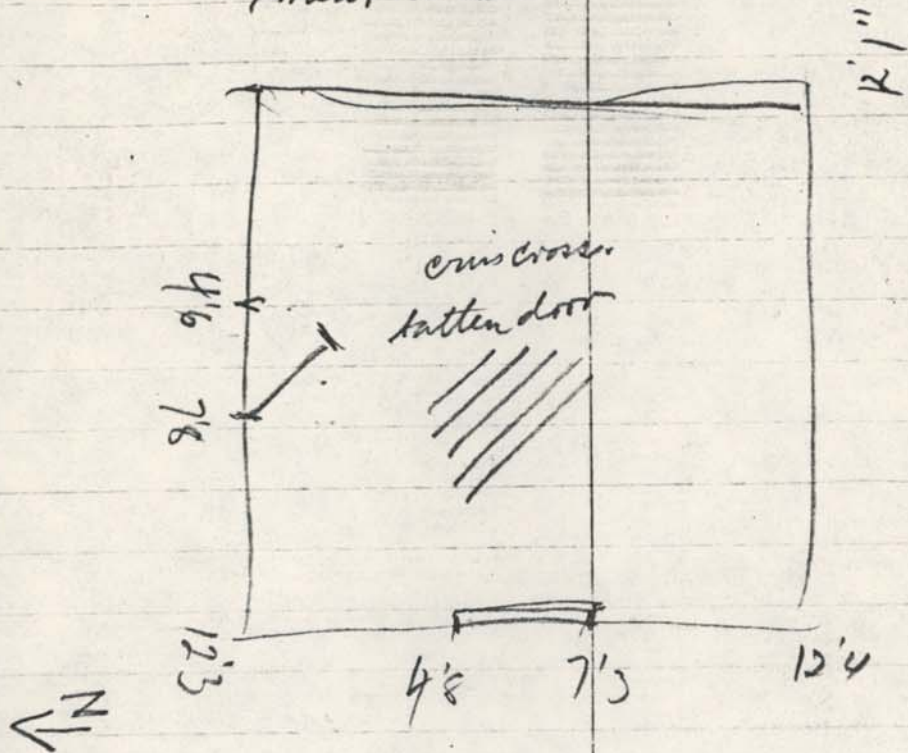 12'1"
criscross
batten door
4'6
7'8
12'3
4'8 7'3 12'4
N